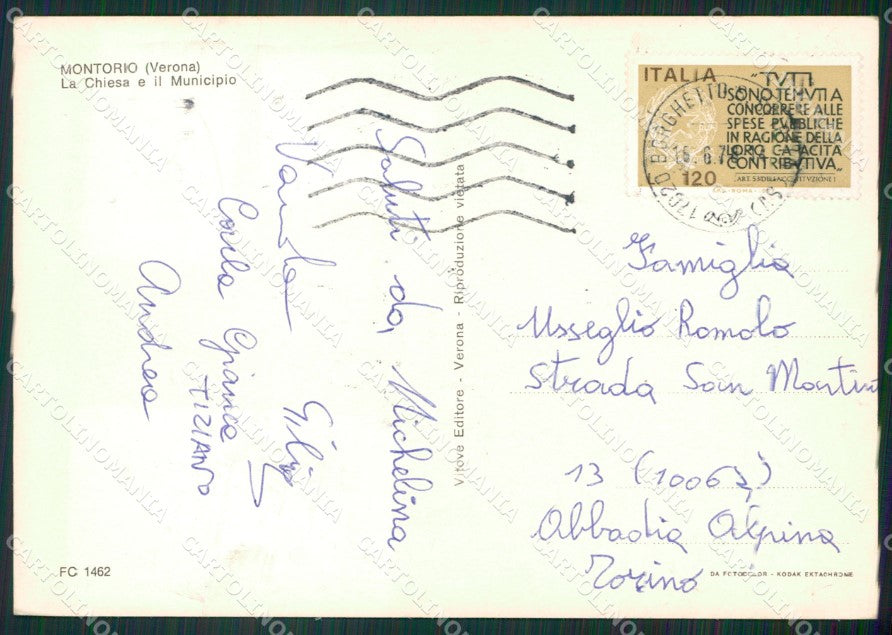 MONTORIO (Verona)
La Chiesa e il Municipio
Saluti da Michelina
Vanda Gilio
Carla Gianca
TIZIANO
Andrea
FC 1462
Vitove Editore - Verona - Riproduzione vietata
ITALIA
"TVTTI
SONO TENVTI A
CONCORRERE ALLE
SPESE PVBBLICHE
IN RAGIONE DELLA
LORO CAPACITA
CONTRIBVTIVA„
ART. 53 DELLA COSTITVZIONE
120
17020 BORGHETTO
Famiglia
Usseglio Romolo
Strada San Martino
13 (10067)
Abbadia Alpina
Torino
DA FOTOCOLOR - KODAK EKTACHROME
CARTOLINOMANIA